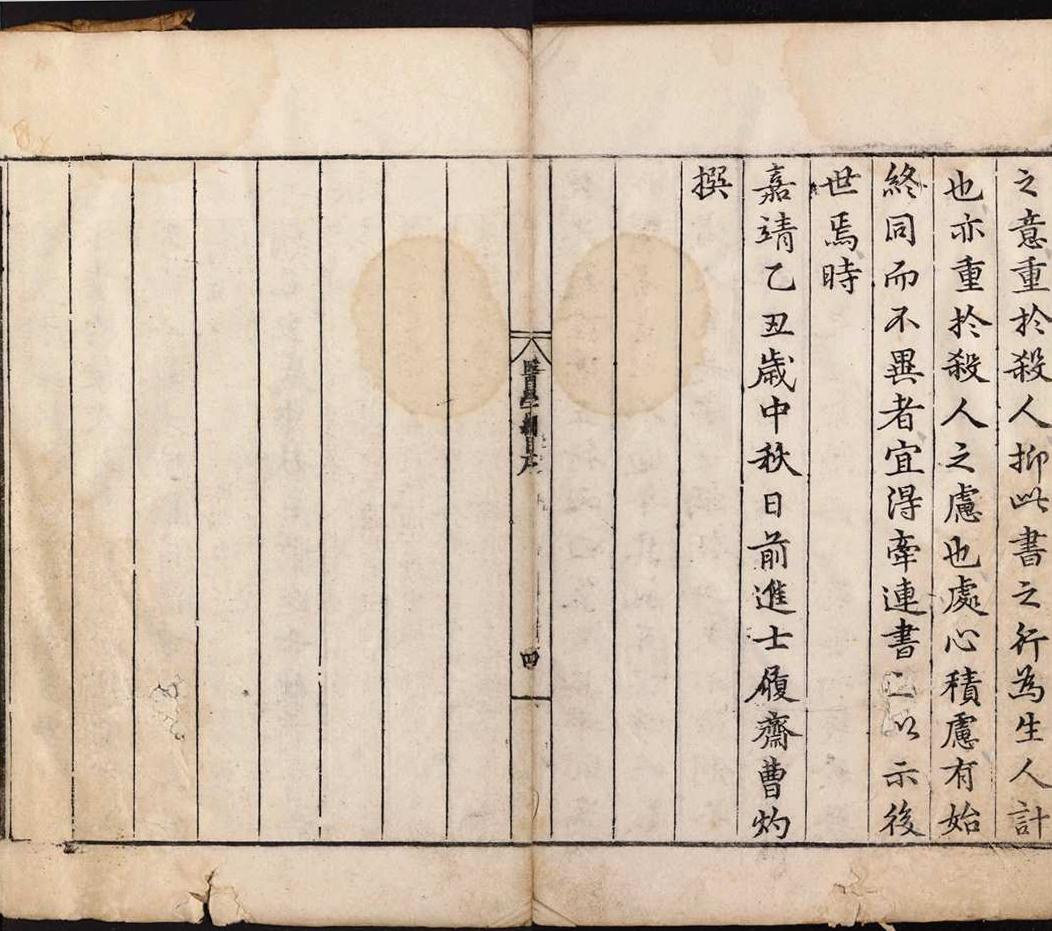 之意重於殺人抑此書之行為生人計
也亦重於殺人之慮也處心積慮有始
終同而不異者宜得牽連書之以示後
世焉時
嘉靖乙丑歲中秋日前進士履齋曹灼
撰
醫學綱目序
四